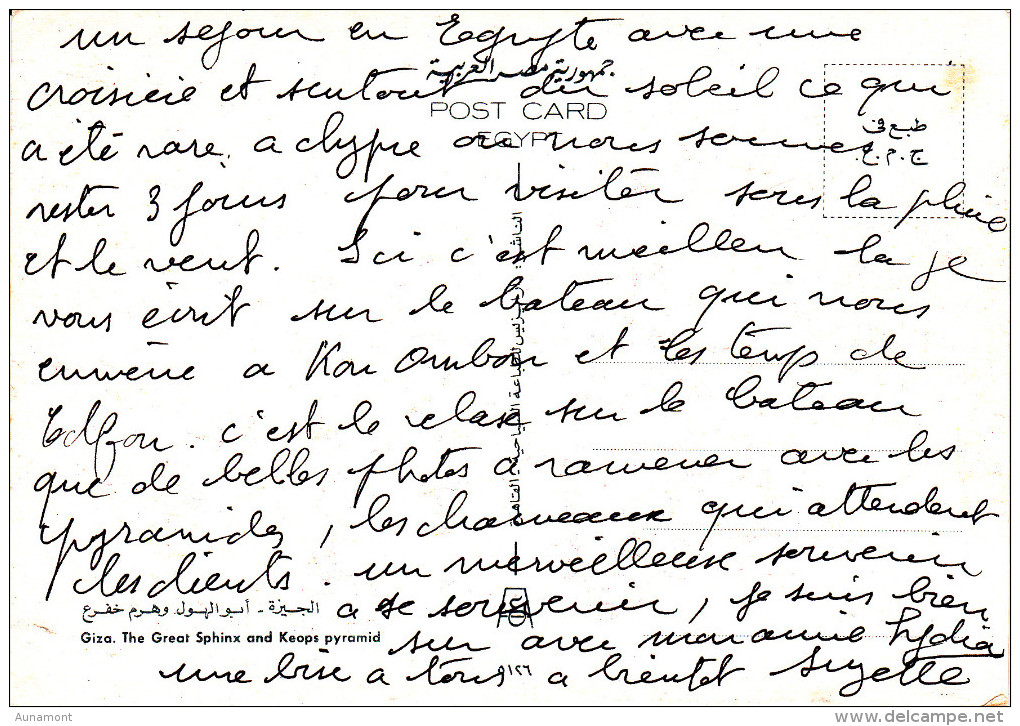 un sejour en Egypte avec une
جمهورية مصر العربية
croisiere et surtout du soleil ce qui
POST CARD
طبع فى
ج.م.ع.
a été rare a chypre ou nous sommes
EGYPT
rester 3 jours pour visiter sous la pluie
et le vent. Ici c'est meilleur la je
vous écrit sur le bateau qui nous
emmène a Kom Ombon et les temp de
Edfou. c'est le relaxe sur le bateau
que de belles photos a ramener avec les
pyramides, les chameaux qui attendent
les clients. un merveilleux souvenir
الجيزة - أبو الهول وهرم خفرع
a se souvenir, je suis bien
Giza. The Great Sphinx and Keops pyramid
sur avec mon amie Lydia
une bise a tous a bientot Suzette
٩١٢٦
Aunamont
www.delcampe.net